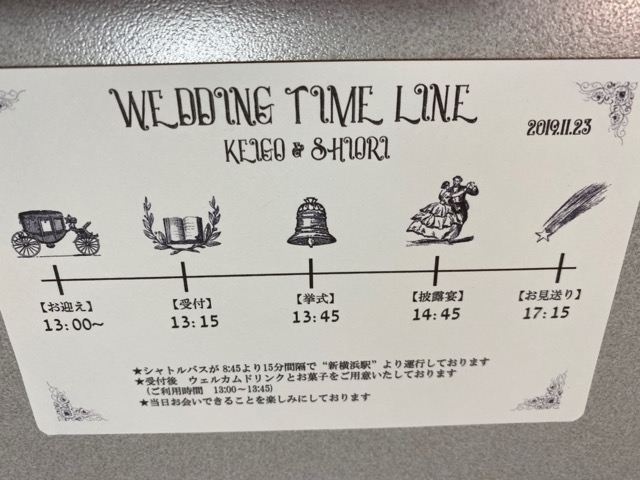 WEDDING TIME LINE
KEIGO & SHIORI
2019.11.23
【お迎え】
13:00〜
【受付】
13:15
【挙式】
13:45
【披露宴】
14:45
【お見送り】
17:15
★シャトルバスが 8:45より15分間隔で "新横浜駅" より運行しております
★受付後 ウェルカムドリンクとお菓子をご用意いたしております
(ご利用時間 13:00〜13:45)
★当日お会いできることを楽しみにしております